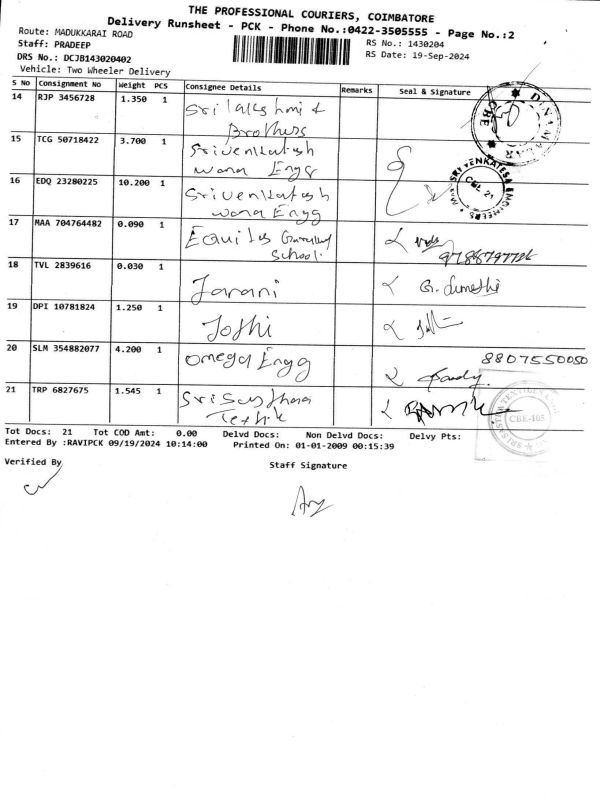 THE PROFESSIONAL COURIERS, COIMBATORE
Delivery Runsheet - PCK - Phone No.:0422-3505555 - Page No.:2
Route: MADUKKARAI ROAD
Staff: PRADEEP
DRS No.: DCJB143020402
Vehicle: Two Wheeler Delivery
RS No.: 1430204
RS Date: 19-Sep-2024
S No Consignment No Weight PCS Consignee Details Remarks Seal & Signature
14 RJP 3456728 1.350 1 Sri lakshmi &
Brothers
15 TCG 50718422 3.700 1 Srivenkatesh
wara Engg
16 EDQ 23280225 10.200 1 Srivenkatesh
wara Engg
17 MAA 704764482 0.090 1 Equitas
School
18 TVL 2839616 0.030 1 Tarani G. Sumathi
19 DPI 10781824 1.250 1 Joshi
20 SLM 354882077 4.200 1 Omega Engg 8807550050
21 TRP 6827675 1.545 1 Sri Sasthara
CBE-105
Tot Docs: 21 Tot COD Amt: 0.00 Delvd Docs: Non Delvd Docs: Delvy Pts:
Entered By :RAVIPCK 09/19/2024 10:14:00 Printed On: 01-01-2009 00:15:39
Verified By
Staff Signature